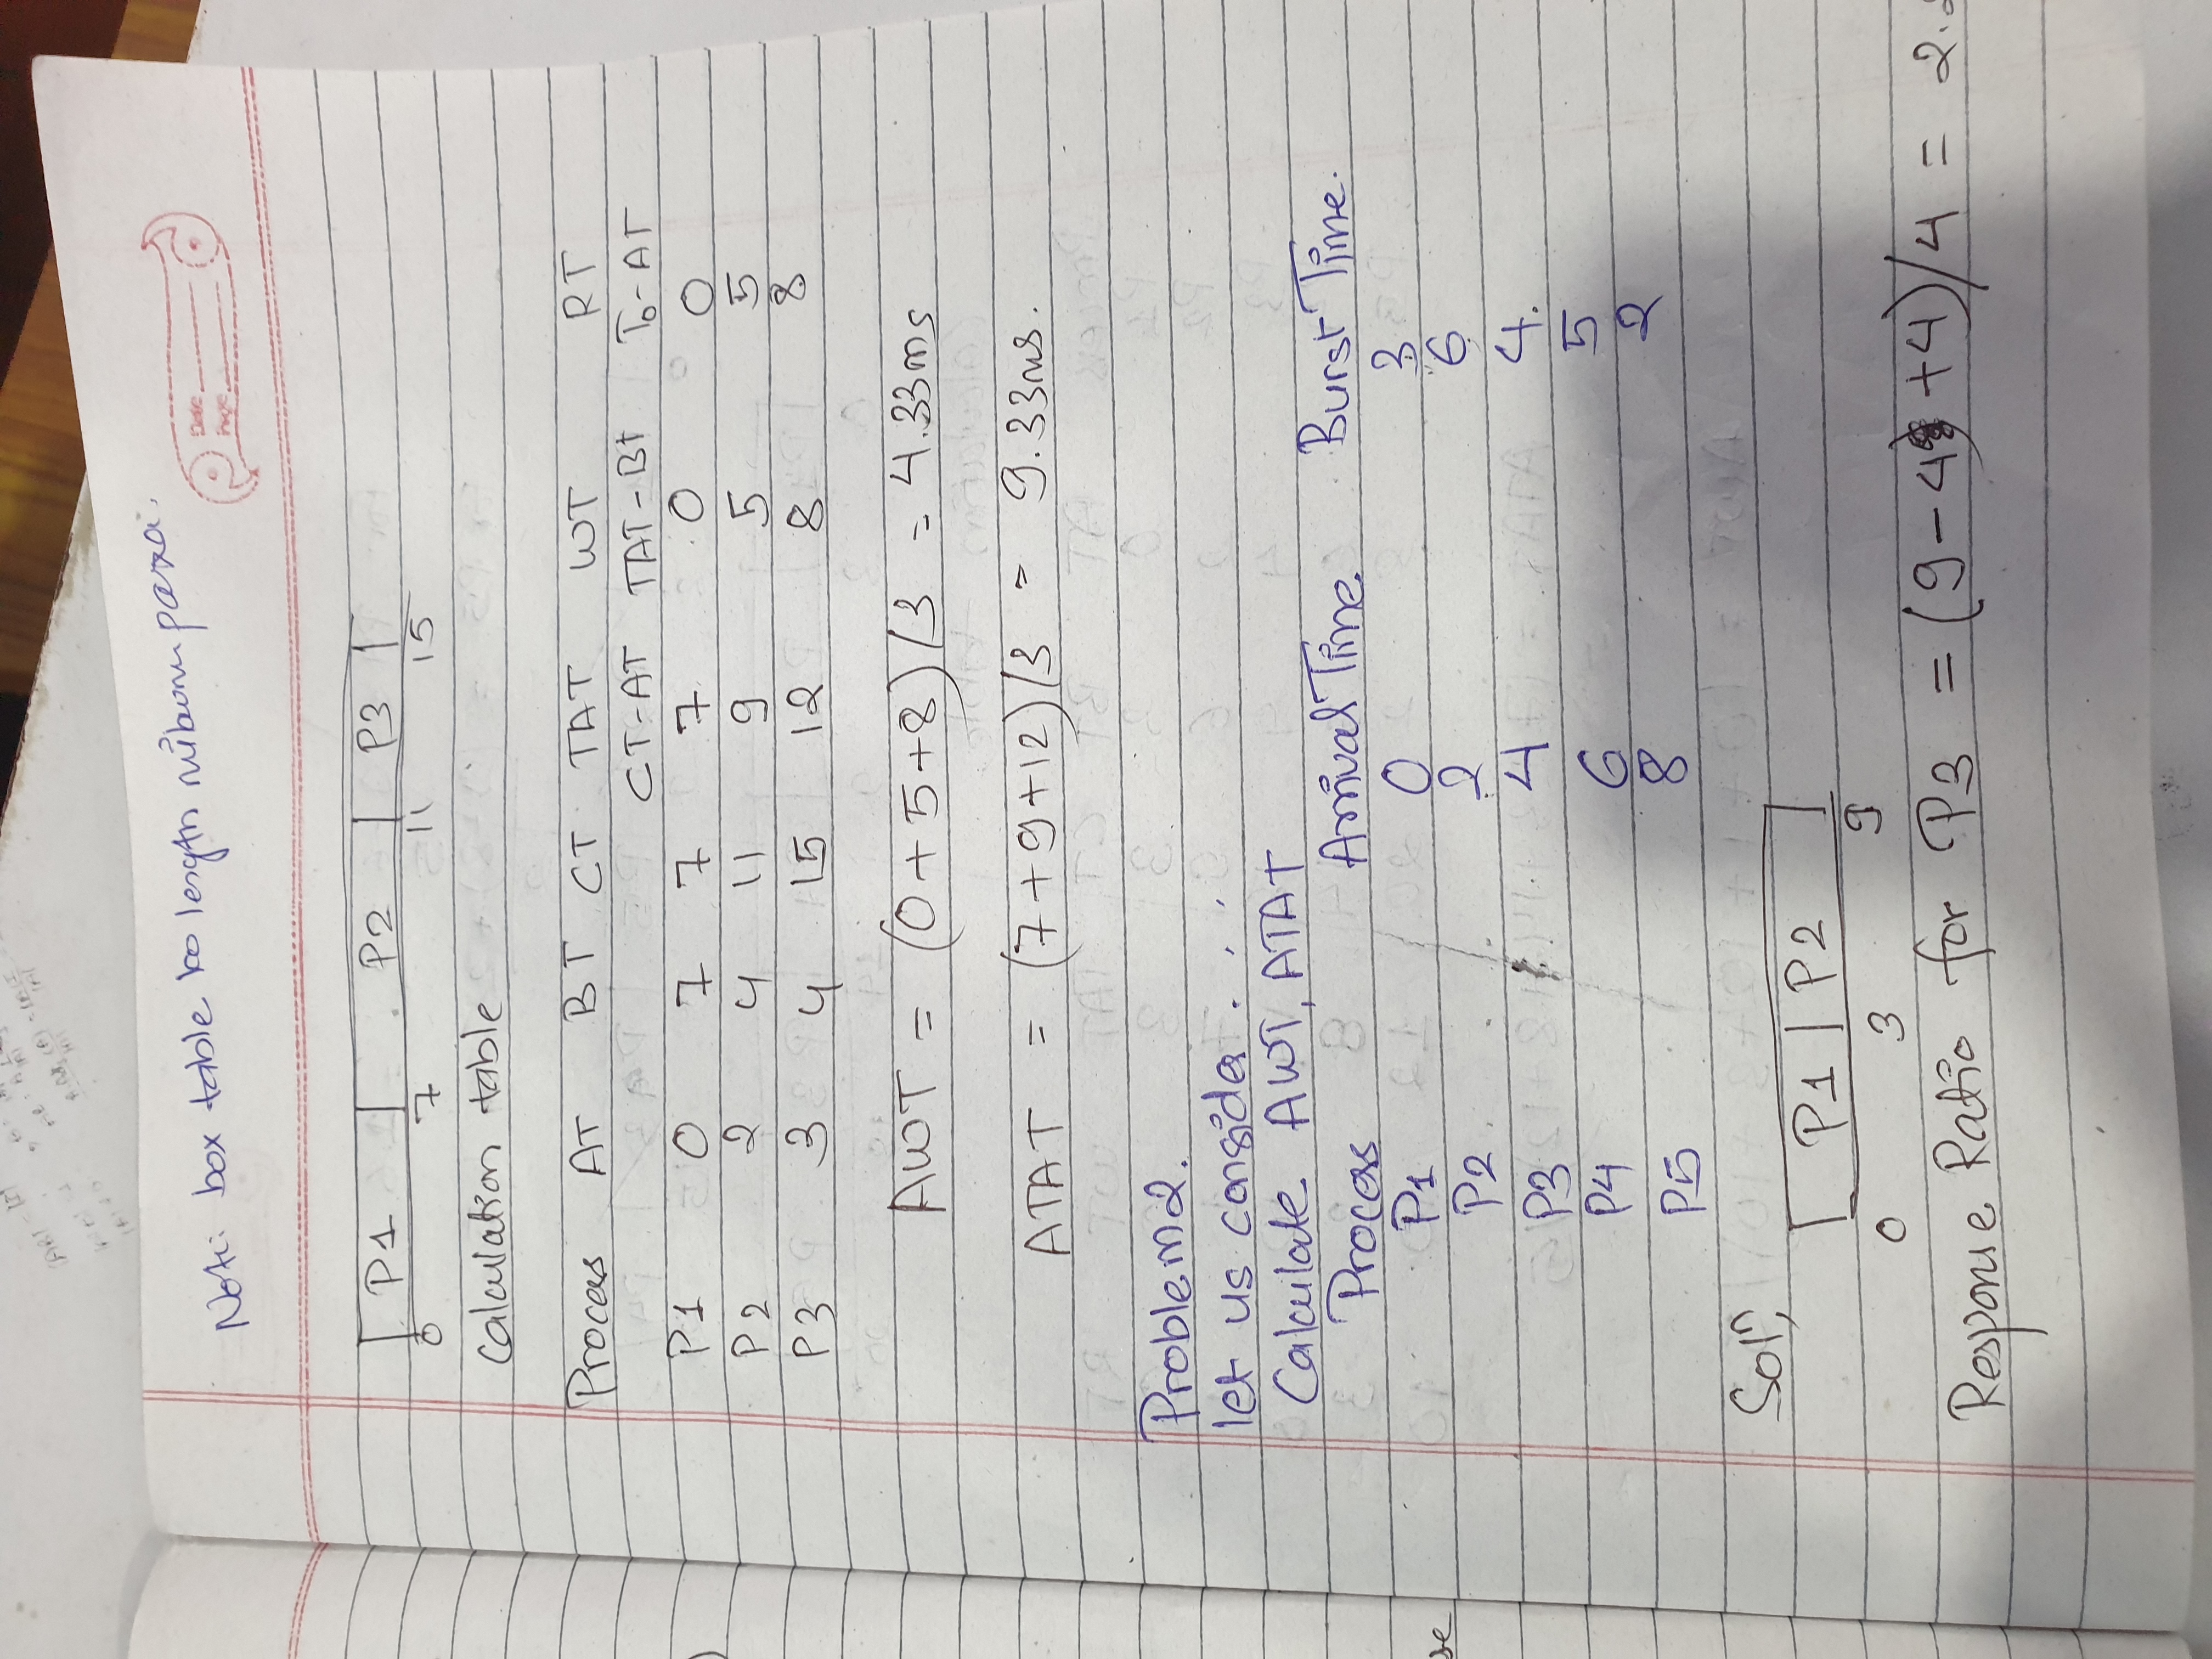 Note: box table ko length milaunu parxa.
Date
Page
P1 P2 P3
0 7 11 15
Calculation table
Process AT BT CT TAT WT RT
CT-AT TAT-Bt T0-AT
P1 0 7 7 7 0 0
P2 2 4 11 9 5 5
P3 3 4 15 12 8 8
AWT = (0+5+8)/3 = 4.33ms
ATAT = (7+9+12)/3 = 9.33ms.
Problem 2.
let us consider ....
Calculate AWT, ATAT
Process Arrival Time Burst Time.
P1 0 3
P2 2 6
P3 4 4.
P4 6 5
P5 8 2
Soln,
P1 P2
0 3 9
Response Ratio for P3 = (9-4+4)/4 = 2.2